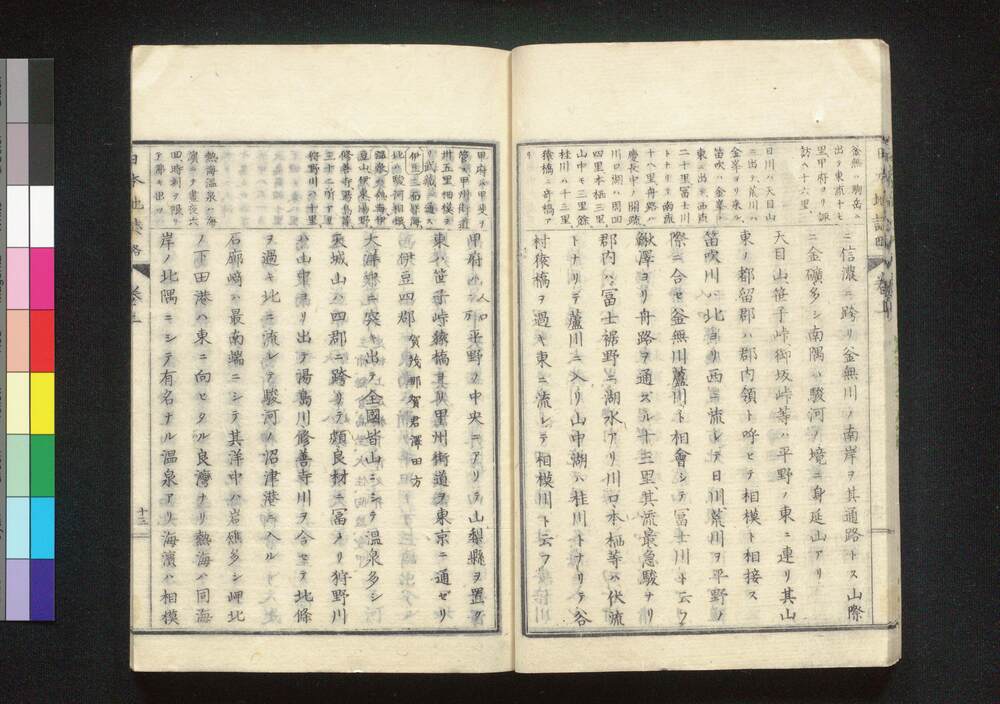 釜無ハ駒岳ニ
出テ東南十七
里甲府ヨリ諏
訪ヘ十六里
日川ハ天目山
ニ出テ荒川ハ
金峯ヨリ来ル
笛吹ハ金峯ト
東ニ出テ西南
二十里冨士川
ト十里南流
十八里舟路ハ
慶長中ノ開鑿
川口湖ハ周四
四里本栖三里
山中モ三里餘
桂川ハ十三里
猿橋ニ奇橋ア
リ
ニ信濃ニ跨リ釜無川ノ南岸ヲ其通路トス山際
ニ金礦多シ南隅ハ駿河ノ境ニ身延山アリ
天目山笹子峠御坂峠等ハ平野ノ東ニ連リ其山
東ノ都留郡ハ郡内領ト呼ヒテ相模ト相接ス
笛吹川ハ北ヨリ西ニ流レテ日川荒川ヲ平野ノ
際ニ合セ釜無川蘆川ト相會シテ冨士川ト云フ
鰍澤ヨリ舟路ヲ通スル十三里其流最急駿ナリ
郡内ハ冨士裾野ニ湖水アリ川口本栖等ハ伏流
トナリテ蘆川ニ入リ山中湖ハ桂川トナリテ谷
村猿橋ヲ過キ東ニ流レテ相模川ト云フ
甲府ハ甲斐ヲ
管ス甲州街道
卅五里相模ヨ
リ武藏ニ通ス
伊豆三面皆海
北ハ駿河相模
温泉ハ熱海伊
豆山伊東湯野
修善寺湯島等
三十二所アリ
狩野川ハ十里
熱海温泉ハ海
濱ニテ晝夜六
四時刻ヲ限リ
テ沸キ出ツ
甲府ハ人口二万平野ノ中央ニアリテ山梨縣ヲ置ク
東ハ笹子峠猿橋ヨリ甲州街道ヲ東京ニ通セリ
伊豆四郡 賀茂那賀君澤田方
大洋中ニ突キ出テ全國皆山ニシテ温泉多シ
天城山ハ四郡ニ跨リテ頗良材ニ冨メリ狩野川
ハ山中ヨリ出テ湯島川修善寺川ヲ合セテ北條
ヲ過キ北ニ流レテ駿河ノ沼津港ニ入ル
石廊崎ハ最南端ニシテ其洋中ハ岩礁多シ岬北
ノ下田港ハ東ニ向ヒタル良灣ナリ熱海ハ同海
岸ノ北隅ニシテ有名ナル温泉アリ海濱ハ相模
日本地誌略
巻三
十三